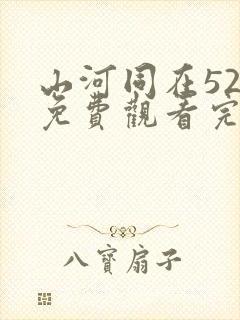 山河同在52
免費觀看完
八寶扇子